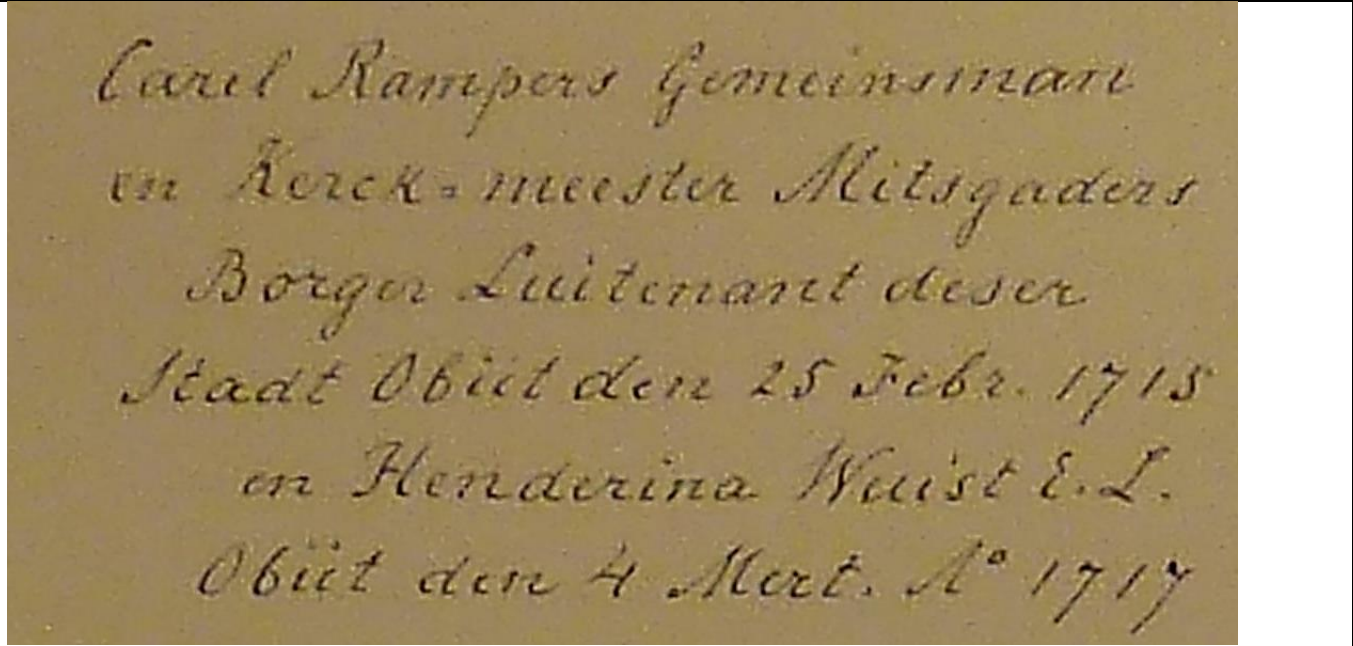 Carel Rampers Gemeinsman
en Kerck=meester Mitsgaders
Borger Luitenant deser
Stadt Obiit den 25 Febr. 1715
en Henderina Wuist E. L.
Obiit den 4 Mert. Aº 1717